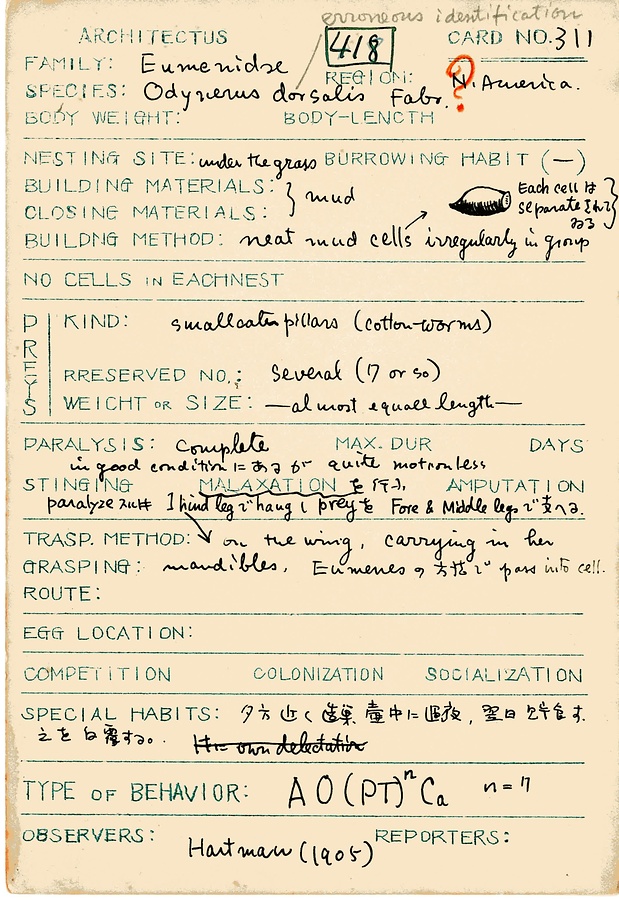 erroneous identification
ARCHITECTUS 418 CARD NO. 311
FAMILY: Eumenidae REGION: N. America.
SPECIES: Odynerus dorsalis Fabr. ?
BODY WEIGHT: BODY-LENGTH
NESTING SITE: under the grass BURROWING HABIT (—)
BUILDING MATERIALS: } mud
CLOSING MATERIALS:
Each cell は
separate されて
ゐる
BUILDNG METHOD: neat mud cells irregularly in group
NO CELLS IN EACHNEST
PREYS
KIND: small caterpillars (cotton-worms)
RRESERVED NO.: Several (7 or so)
WEIGHT OR SIZE: —almost equall length—
PARALYSIS: Complete MAX. DUR DAYS
in good condition にあるが quite motionless
STINGING MALAXATION を行う, AMPUTATION
paralyze スルキ 1 hind leg で hang し prey を Fore & Middle legs で支へる.
TRASP. METHOD: on the wing, carrying in her
GRASPING: mandibles. Eumenes の方法で pass into cell.
ROUTE:
EGG LOCATION:
COMPETITION COLONIZATION SOCIALIZATION
SPECIAL HABITS: 夕方近く造巣 壷中に過夜, 翌日
之を する。 own delectation
TYPE OF BEHAVIOR: AO(PT)ⁿCa n=7
OBSERVERS: Hartman (1905) REPORTERS: